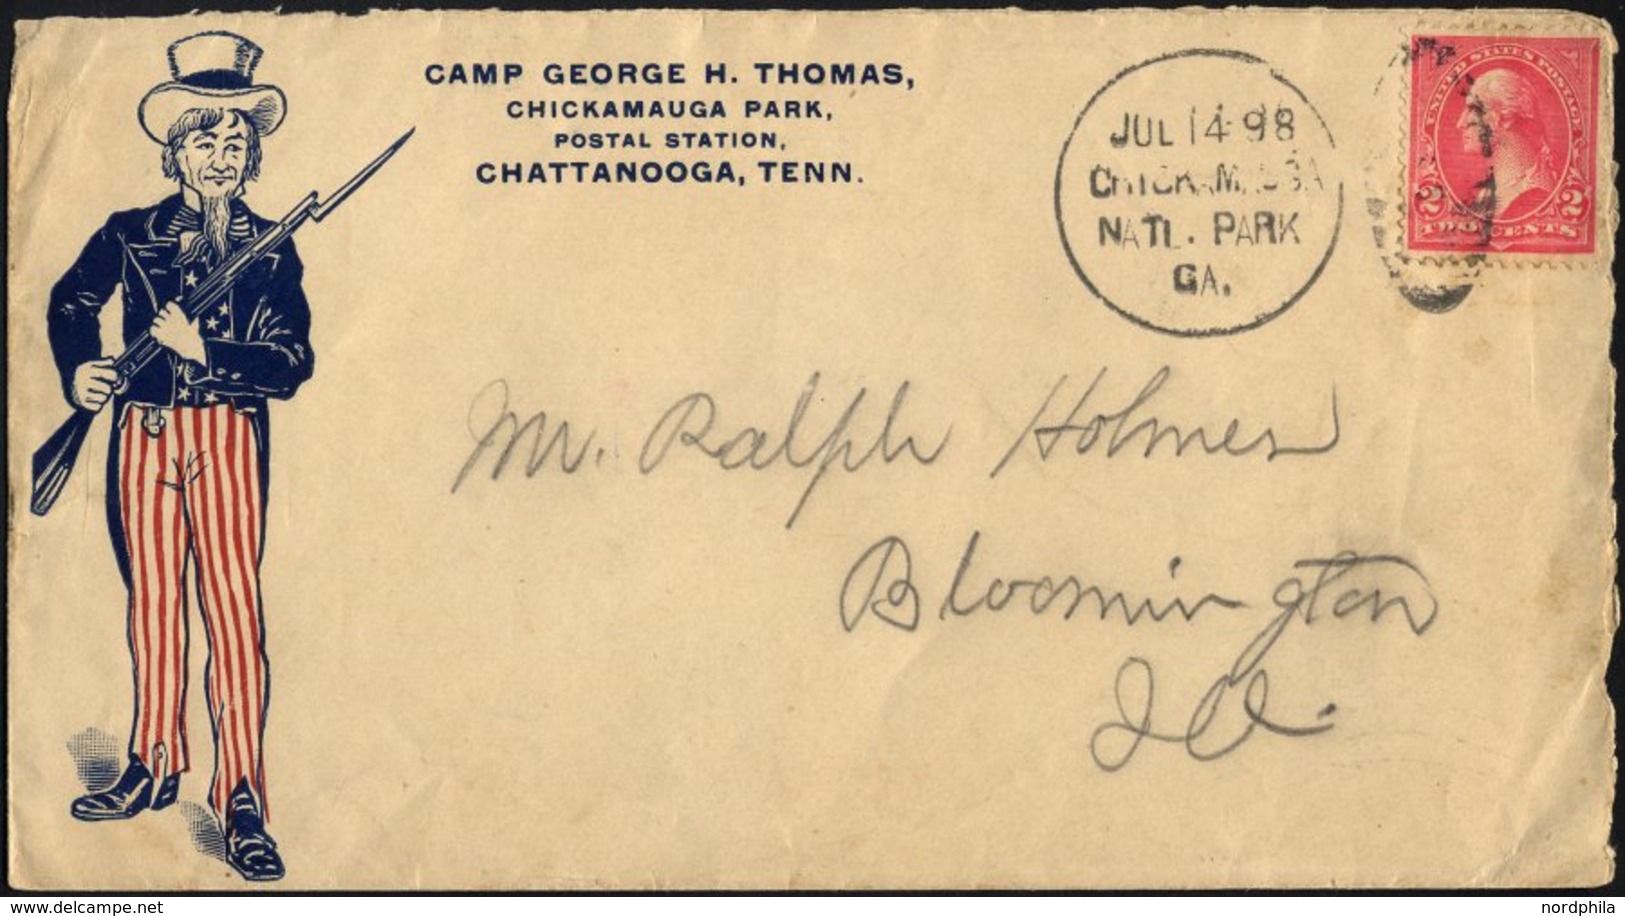 CAMP GEORGE H. THOMAS,
CHICKAMAUGA PARK,
POSTAL STATION,
CHATTANOOGA, TENN.
JUL 14 98
CHICKAMAUGA
NATL. PARK
GA.
UNITED STATES POSTAGE
2 2
TWO CENTS
Mr. Ralph Holmes
Bloomington
Ill.
www.delcampe.net
nordphila